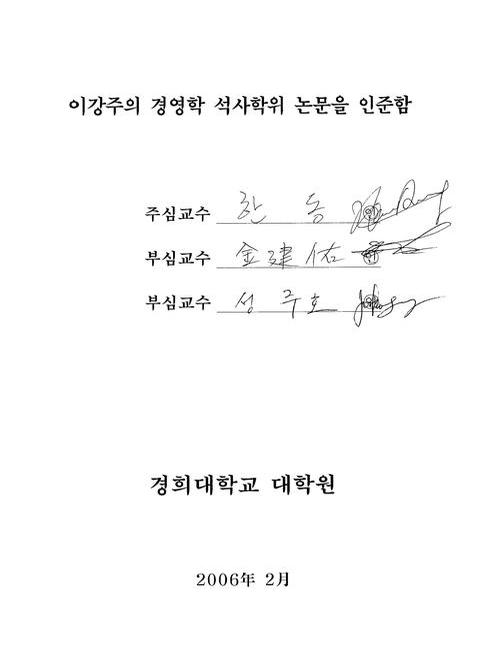 이강주의 경영학 석사학위 논문을 인준함
주심교수 한 동
부심교수 金建佑
부심교수 성 주호
경희대학교 대학원
2006年 2月